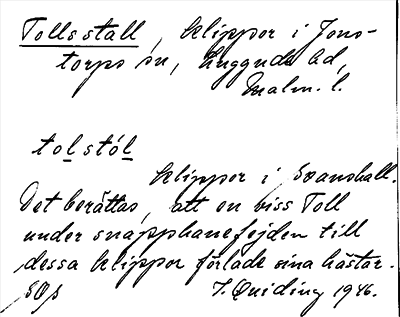 Tollsstall, klippor i Jons-
torps sn, Luggude hd,
Malm. l.
tolstól
klippor i Svanshall.
Det berättas, att en viss Toll
under snapphanefejden till
dessa klippor förlade sina hästar.
SOs
T. Quiding 1946.